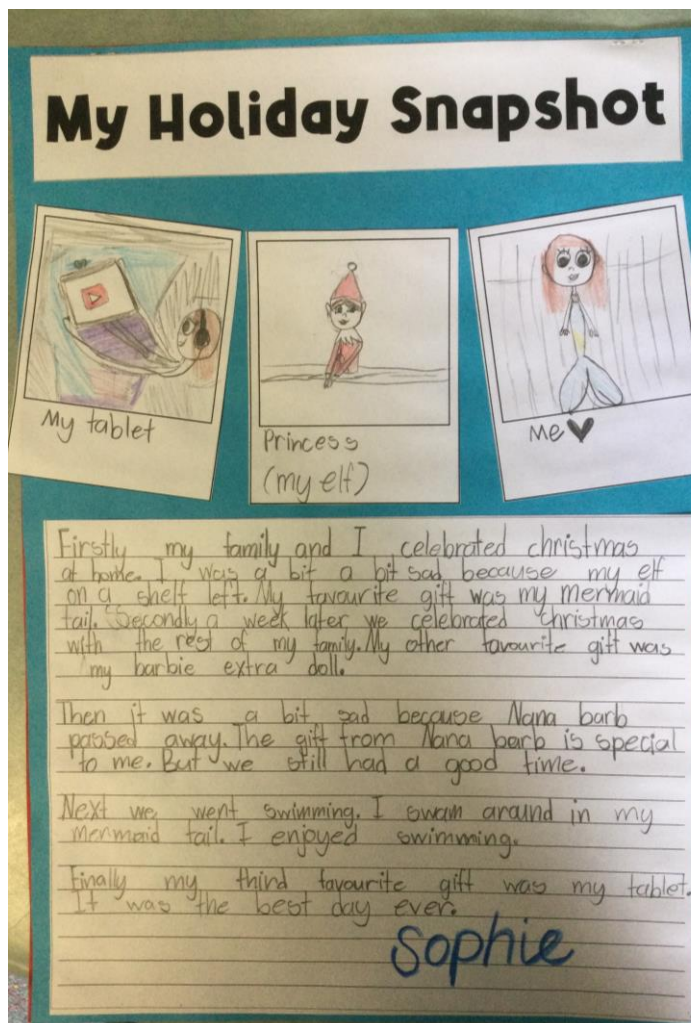 My Holiday Snapshot
My tablet
Princess
(my elf)
Me♥
Firstly my family and I celebrated christmas
at home. I was a bit a bit sad because my elf
on a shelf left. My favourite gift was my mermaid
tail. Secondly a week later we celebrated christmas
with the rest of my family. My other favourite gift was
my barbie extra doll.
Then it was a bit sad because Nana barb
passed away. The gift from Nana barb is special
to me. But we still had a good time.
Next we went swimming. I swam around in my
mermaid tail. I enjoyed swimming.
Finally my third favourite gift was my tablet.
It was the best day ever.
Sophie